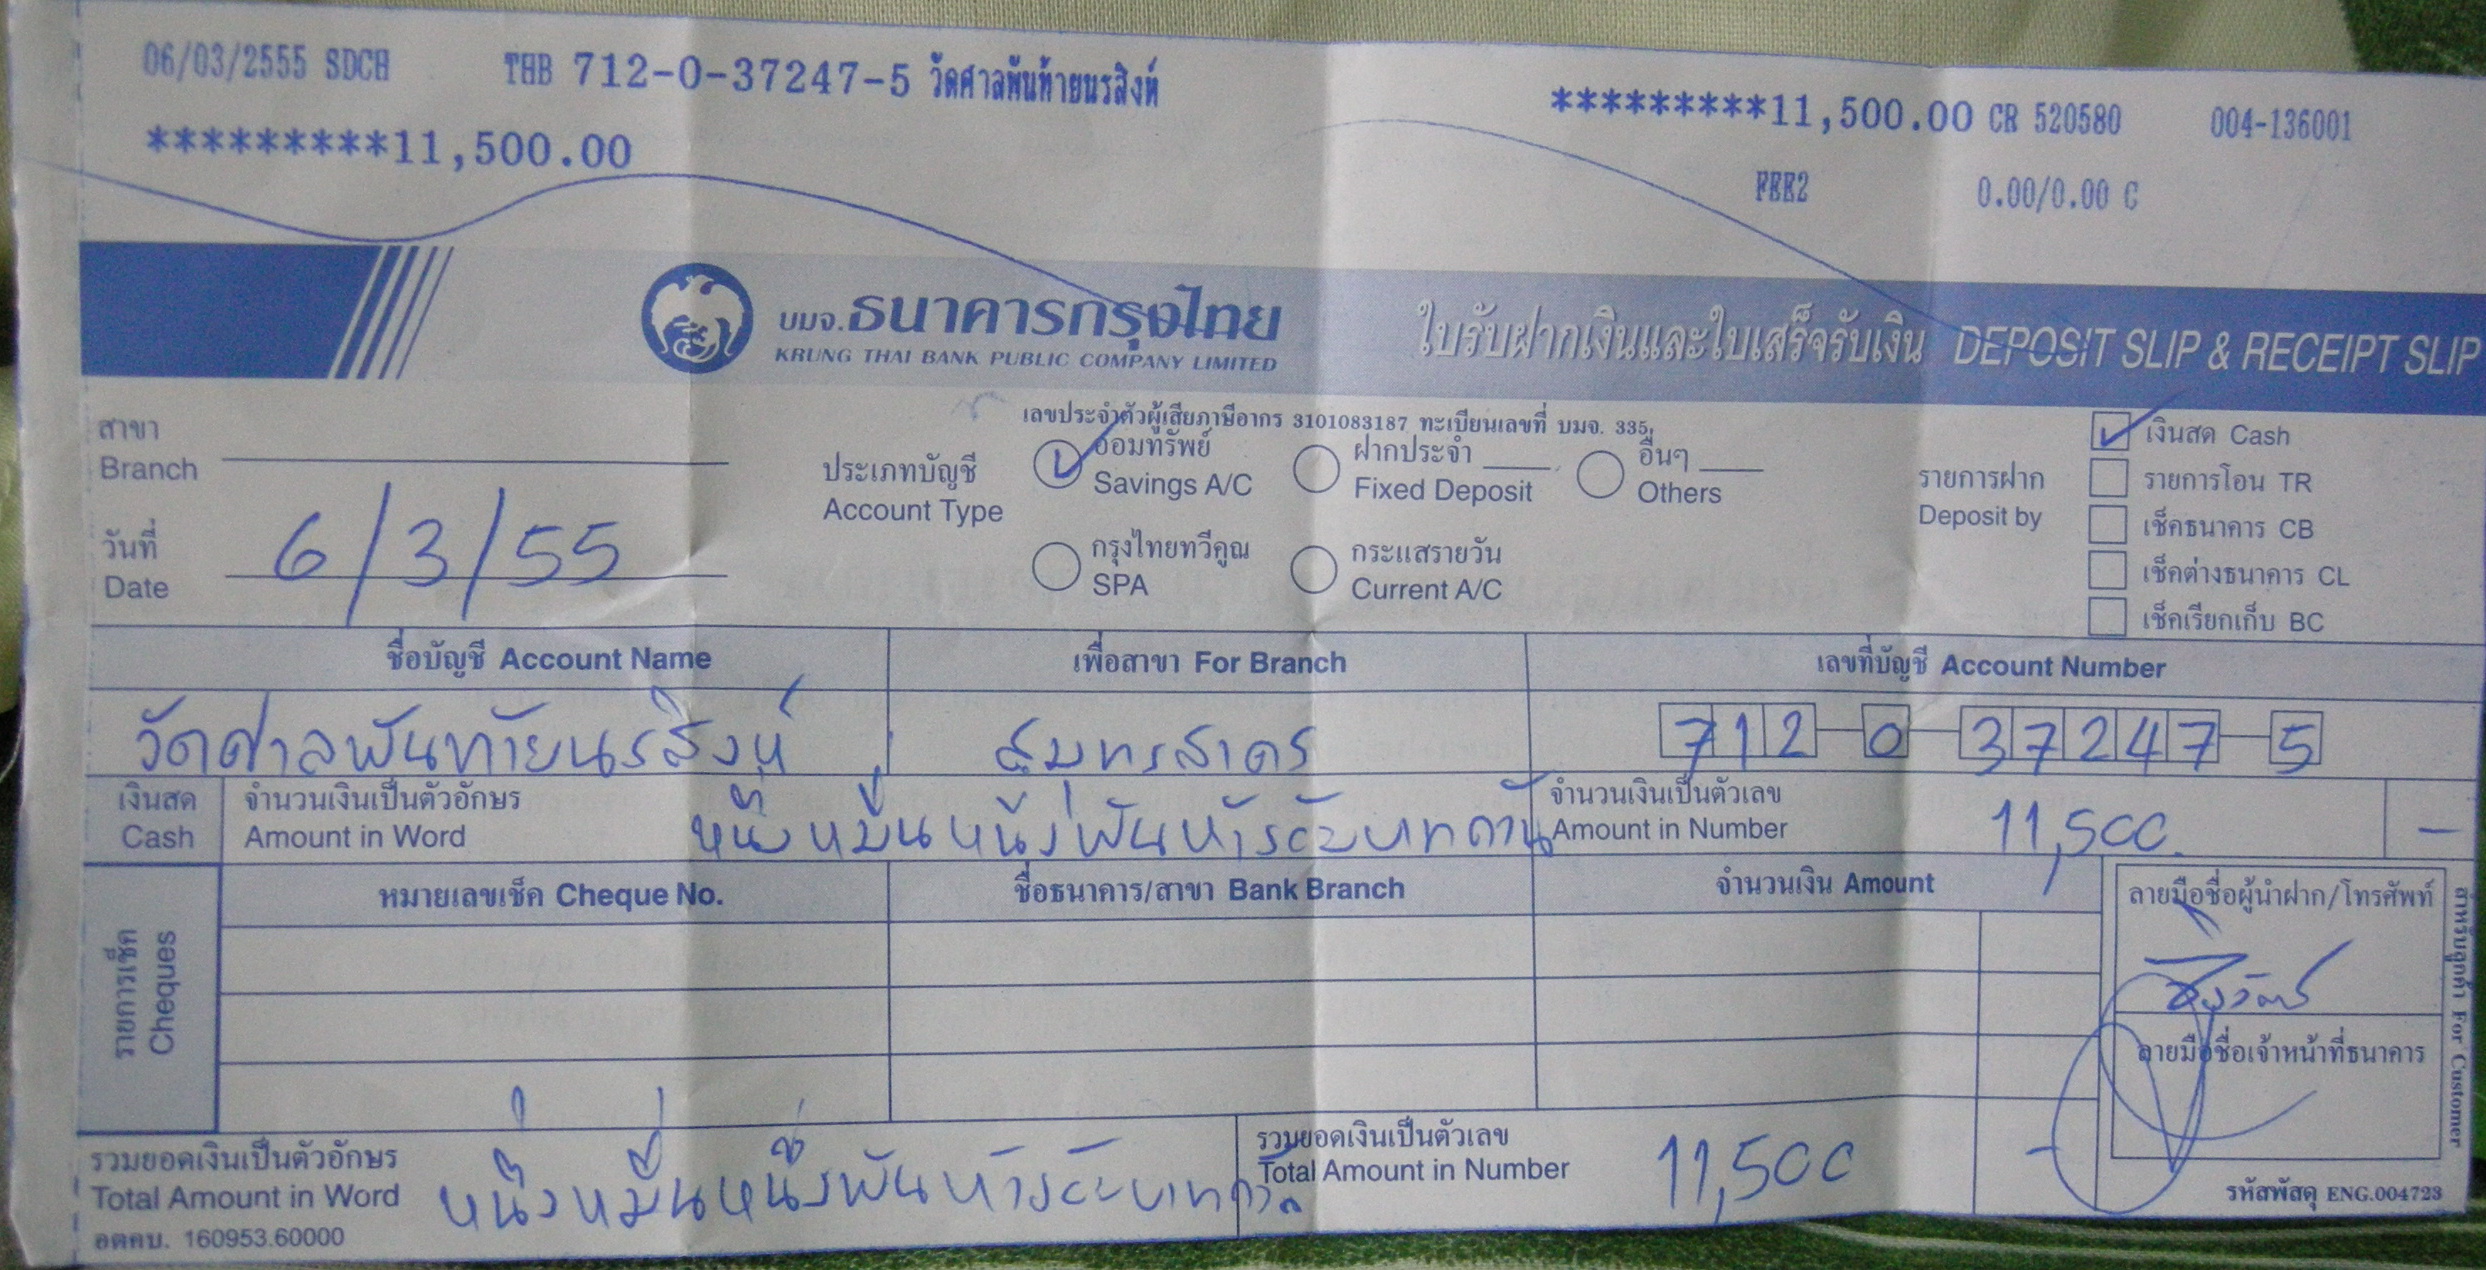 06/03/2555 SDCH THB 712-0-37247-5 วัดศาลพันท้ายนรสิงห์ *********11,500.00 CR 520580 004-136001
*********11,500.00 FEE2 0.00/0.00 C
บมจ.ธนาคารกรุงไทย ใบรับฝากเงินและใบเสร็จรับเงิน DEPOSIT SLIP & RECEIPT SLIP
KRUNG THAI BANK PUBLIC COMPANY LIMITED
เลขประจำตัวผู้เสียภาษีอากร 3101083187 ทะเบียนเลขที่ บมจ. 335
สาขา
Branch
วันที่
Date
6/3/55
ประเภทบัญชี
Account Type
ออมทรัพย์
Savings A/C
ฝากประจำ
Fixed Deposit
อื่นๆ
Others
กรุงไทยทวีคูณ
SPA
กระแสรายวัน
Current A/C
รายการฝาก
Deposit by
เงินสด Cash
รายการโอน TR
เช็คธนาคาร CB
เช็คต่างธนาคาร CL
เช็คเรียกเก็บ BC
ชื่อบัญชี Account Name เพื่อสาขา For Branch เลขที่บัญชี Account Number
วัดศาลพันท้ายนรสิงห์ สมุทรสาคร 712-0-37247-5
เงินสด
Cash
จำนวนเงินเป็นตัวอักษร
Amount in Word
หนึ่งหมื่นหนึ่งพันห้าร้อยบาทถ้วน
จำนวนเงินเป็นตัวเลข
Amount in Number
11,500 -
รายการเช็ค
Cheques
หมายเลขเช็ค Cheque No. ชื่อธนาคาร/สาขา Bank Branch จำนวนเงิน Amount
ลายมือชื่อผู้นำฝาก/โทรศัพท์
ลายมือชื่อเจ้าหน้าที่ธนาคาร
สำหรับลูกค้า For Customer
รวมยอดเงินเป็นตัวอักษร
Total Amount in Word
หนึ่งหมื่นหนึ่งพันห้าร้อยบาทถ้วน
รวมยอดเงินเป็นตัวเลข
Total Amount in Number
11,500 -
อตคบ. 160953.60000
รหัสพัสดุ ENG.004723